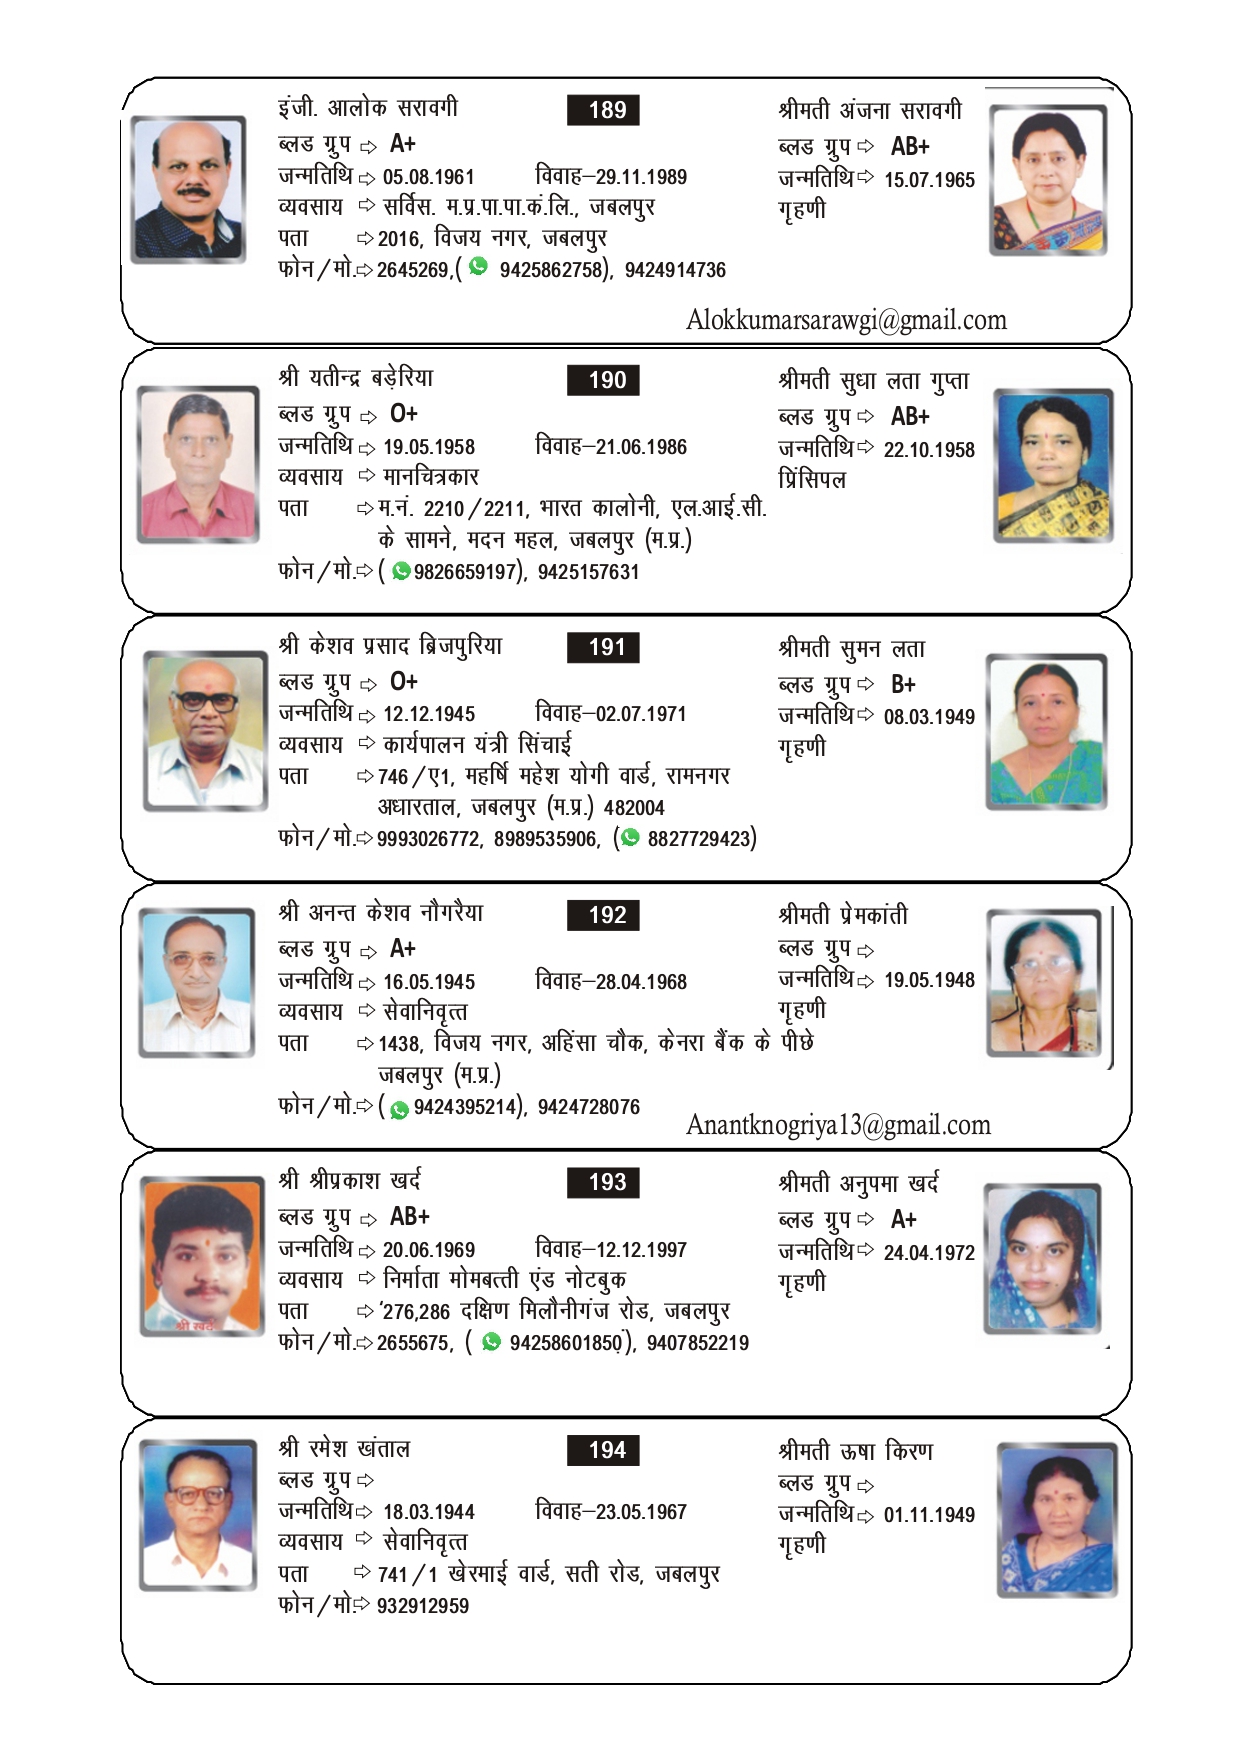 इंजी. आलोक सरावगी 189 श्रीमती अंजना सरावगी
ब्लड ग्रुप ⇨ A+ ब्लड ग्रुप ⇨ AB+
जन्मतिथि ⇨ 05.08.1961 विवाह–29.11.1989 जन्मतिथि ⇨ 15.07.1965
व्यवसाय ⇨ सर्विस. म.प्र.पा.पा.कं.लि., जबलपुर गृहणी
पता ⇨ 2016, विजय नगर, जबलपुर
फोन/मो.⇨ 2645269,( 9425862758), 9424914736
Alokkumarsarawgi@gmail.com
श्री यतीन्द्र बड़ेरिया 190 श्रीमती सुधा लता गुप्ता
ब्लड ग्रुप ⇨ O+ ब्लड ग्रुप ⇨ AB+
जन्मतिथि ⇨ 19.05.1958 विवाह–21.06.1986 जन्मतिथि ⇨ 22.10.1958
व्यवसाय ⇨ मानचित्रकार प्रिंसिपल
पता ⇨ म.नं. 2210/2211, भारत कालोनी, एल.आई.सी.
के सामने, मदन महल, जबलपुर (म.प्र.)
फोन/मो.⇨ ( 9826659197), 9425157631
श्री केशव प्रसाद ब्रिजपुरिया 191 श्रीमती सुमन लता
ब्लड ग्रुप ⇨ O+ ब्लड ग्रुप ⇨ B+
जन्मतिथि ⇨ 12.12.1945 विवाह–02.07.1971 जन्मतिथि ⇨ 08.03.1949
व्यवसाय ⇨ कार्यपालन यंत्री सिंचाई गृहणी
पता ⇨ 746/ए1, महर्षि महेश योगी वार्ड, रामनगर
अधारताल, जबलपुर (म.प्र.) 482004
फोन/मो.⇨ 9993026772, 8989535906, ( 8827729423)
श्री अनन्त केशव नौगरैया 192 श्रीमती प्रेमकांती
ब्लड ग्रुप ⇨ A+ ब्लड ग्रुप ⇨
जन्मतिथि ⇨ 16.05.1945 विवाह–28.04.1968 जन्मतिथि ⇨ 19.05.1948
व्यवसाय ⇨ सेवानिवृत्त गृहणी
पता ⇨ 1438, विजय नगर, अहिंसा चौक, केनरा बैंक के पीछे
जबलपुर (म.प्र.)
फोन/मो.⇨ ( 9424395214), 9424728076
Anantknogriya13@gmail.com
श्री श्रीप्रकाश खर्द 193 श्रीमती अनुपमा खर्द
ब्लड ग्रुप ⇨ AB+ ब्लड ग्रुप ⇨ A+
जन्मतिथि ⇨ 20.06.1969 विवाह–12.12.1997 जन्मतिथि ⇨ 24.04.1972
व्यवसाय ⇨ निर्माता मोमबत्ती एंड नोटबुक गृहणी
पता ⇨ ‘276,286 दक्षिण मिलौनीगंज रोड, जबलपुर
फोन/मो.⇨ 2655675, ( 94258601850), 9407852219
श्री रमेश खंताल 194 श्रीमती ऊषा किरण
ब्लड ग्रुप ⇨ ब्लड ग्रुप ⇨
जन्मतिथि ⇨ 18.03.1944 विवाह–23.05.1967 जन्मतिथि ⇨ 01.11.1949
व्यवसाय ⇨ सेवानिवृत्त गृहणी
पता ⇨ 741/1 खेरमाई वार्ड, सती रोड, जबलपुर
फोन/मो.⇨ 932912959